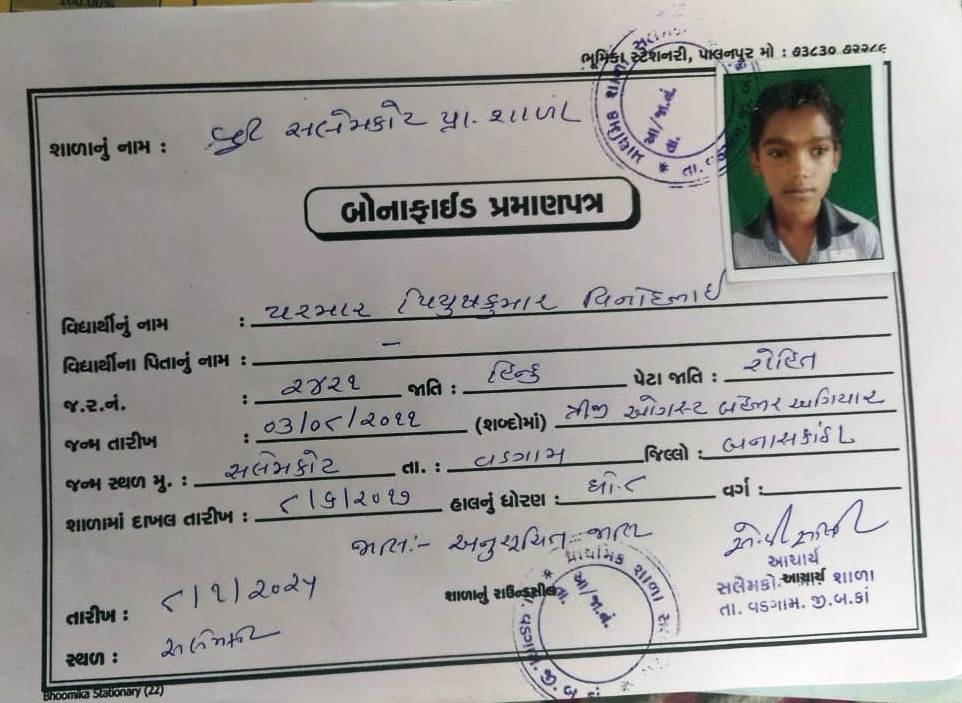 100.00%
ભૂમિકા સ્ટેશનરી, પાલનપુર મો : ૭૩૮૩૦ ૭૨૨૮૬
શાળાનું નામ : શ્રી સલેમકોટ પ્રા. શાળા
બોનાફાઈડ પ્રમાણપત્ર
વિદ્યાર્થીનું નામ : પરમાર પિયુષકુમાર વિનોદભાઈ
વિદ્યાર્થીના પિતાનું નામ : –
જ.ર.નં. : ૨૪૨૧ જાતિ : હિન્દુ પેટા જાતિ : રોહિત
જન્મ તારીખ : ૦૩/૦૮/૨૦૧૧ (શબ્દોમાં) ત્રીજી ઓગસ્ટ બેહજાર અગિયાર
જન્મ સ્થળ મુ. : સલેમકોટ તા. : વડગામ જિલ્લો : બનાસકાંઠા
શાળામાં દાખલ તારીખ : ૮/૬/૨૦૧૭ હાલનું ધોરણ : ધો.૮ વર્ગ :
જાતિ:- અનુસૂચિત જાતિ
આચાર્ય
તારીખ : ૮/૧/૨૦૨૫ શાળાનું રાઉન્ડસીલ સલેમકો. આચાર્ય શાળા
તા. વડગામ. જી.બ.કાં
સ્થળ : સલેમકોટ
પ્રાથમિક શાળા
Bhoomika Stationary (22)